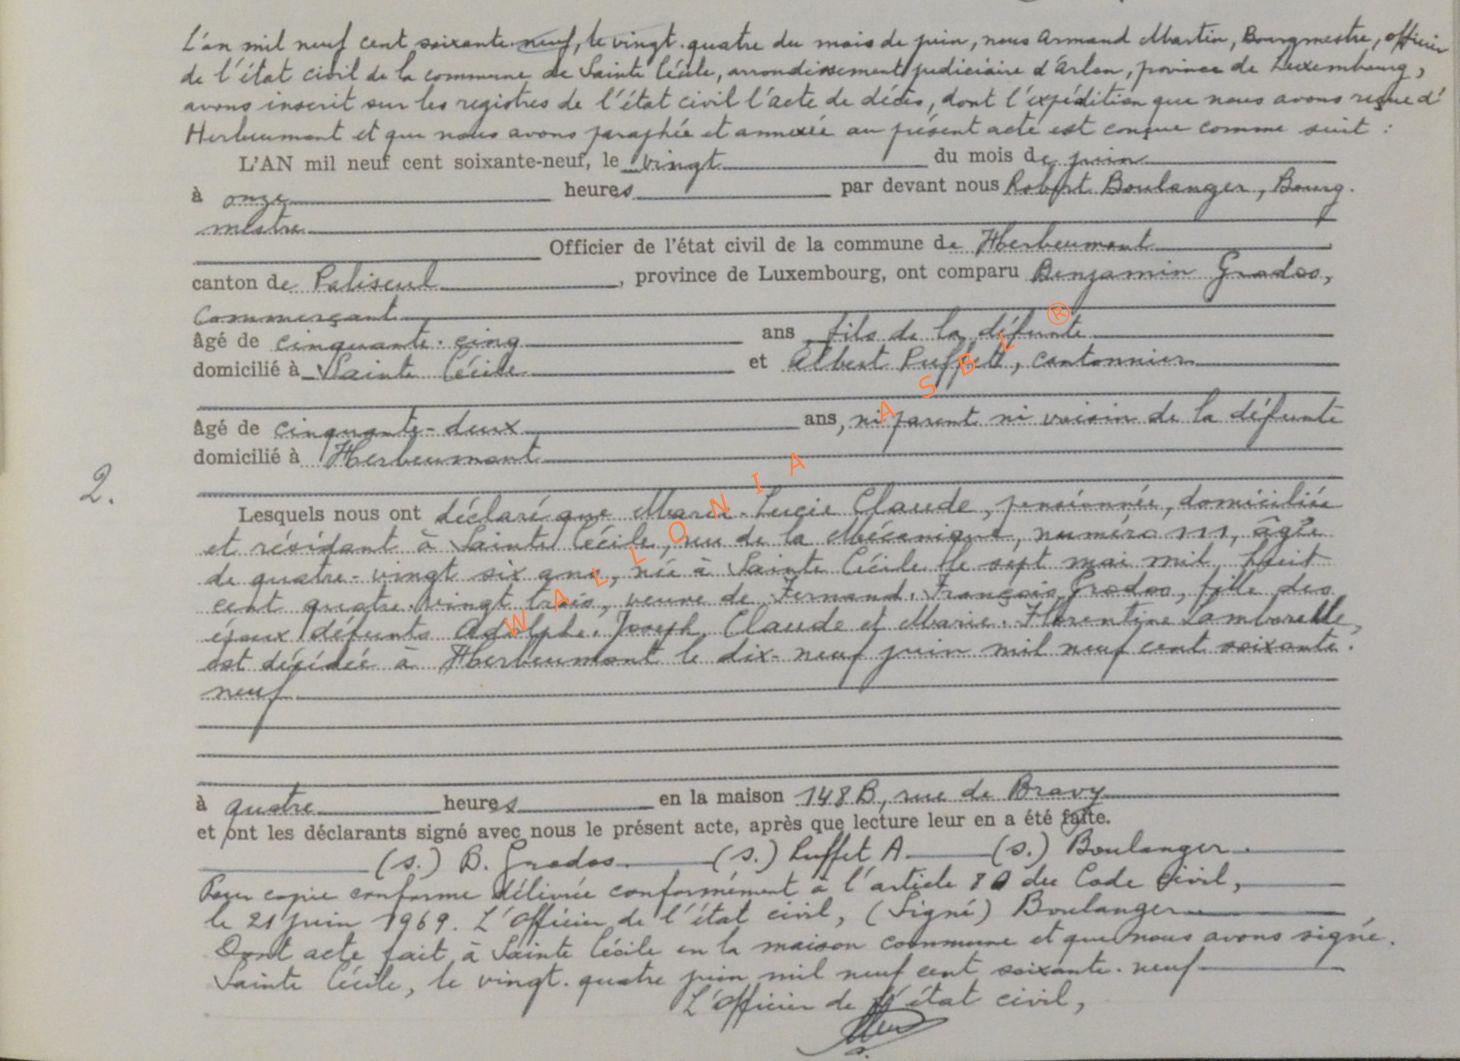 L'an mil neuf cent soixante-neuf, le vingt-quatre du mois de juin, nous Armand Martin, Bourgmestre, officier
de l'état civil de la commune de Sainte Cécile, arrondissement judiciaire d'Arlon, province de Luxembourg,
avons inscrit sur les registres de l'état civil l'acte de décès, dont l'expédition que nous avons reçue d'
Herbeumont et que nous avons paraphée et annexée au présent acte est conçue comme suit :
L'AN mil neuf cent soixante-neuf, le vingt du mois de juin
à onze heures par devant nous Robert Boulanger, Bourg-
mestre
Officier de l'état civil de la commune de Herbeumont
canton de Paliseul, province de Luxembourg, ont comparu Benjamin Grados,
commerçant
âgé de cinquante-cinq ans fils de la défunte
domicilié à Sainte Cécile et Albert Puffet, cantonnier
âgé de cinquante-deux ans, ni parent ni voisin de la défunte
domicilié à Herbeumont
2.
Lesquels nous ont déclaré que Marie-Lucie Claude, pensionnée, domiciliée
et résidant à Sainte Cécile, rue de la Mécanique, numéro 111, âgée
de quatre-vingt six ans, née à Sainte Cécile le sept mai mil huit
cent quatre-vingt trois, veuve de Fernand-François Grados, fille des
époux défunts Adolphe-Joseph Claude et Marie-Florentine Lamborelle,
est décédée à Herbeumont le dix-neuf juin mil neuf cent soixante-
neuf
à quatre heures en la maison 148B, rue de Bravy
et ont les déclarants signé avec nous le présent acte, après que lecture leur en a été faite.
(s.) B. Grados. (s.) Puffet A. (s.) Boulanger.
Pour copie conforme délivrée conformément à l'article 80 du Code Civil,
le 21 juin 1969. L'Officier de l'état civil, (Signé) Boulanger
Dont acte fait à Sainte Cécile en la maison commune et que nous avons signé.
Sainte Cécile, le vingt-quatre juin mil neuf cent soixante-neuf
L'Officier de l'état civil,
WALLONIA ASBL ®